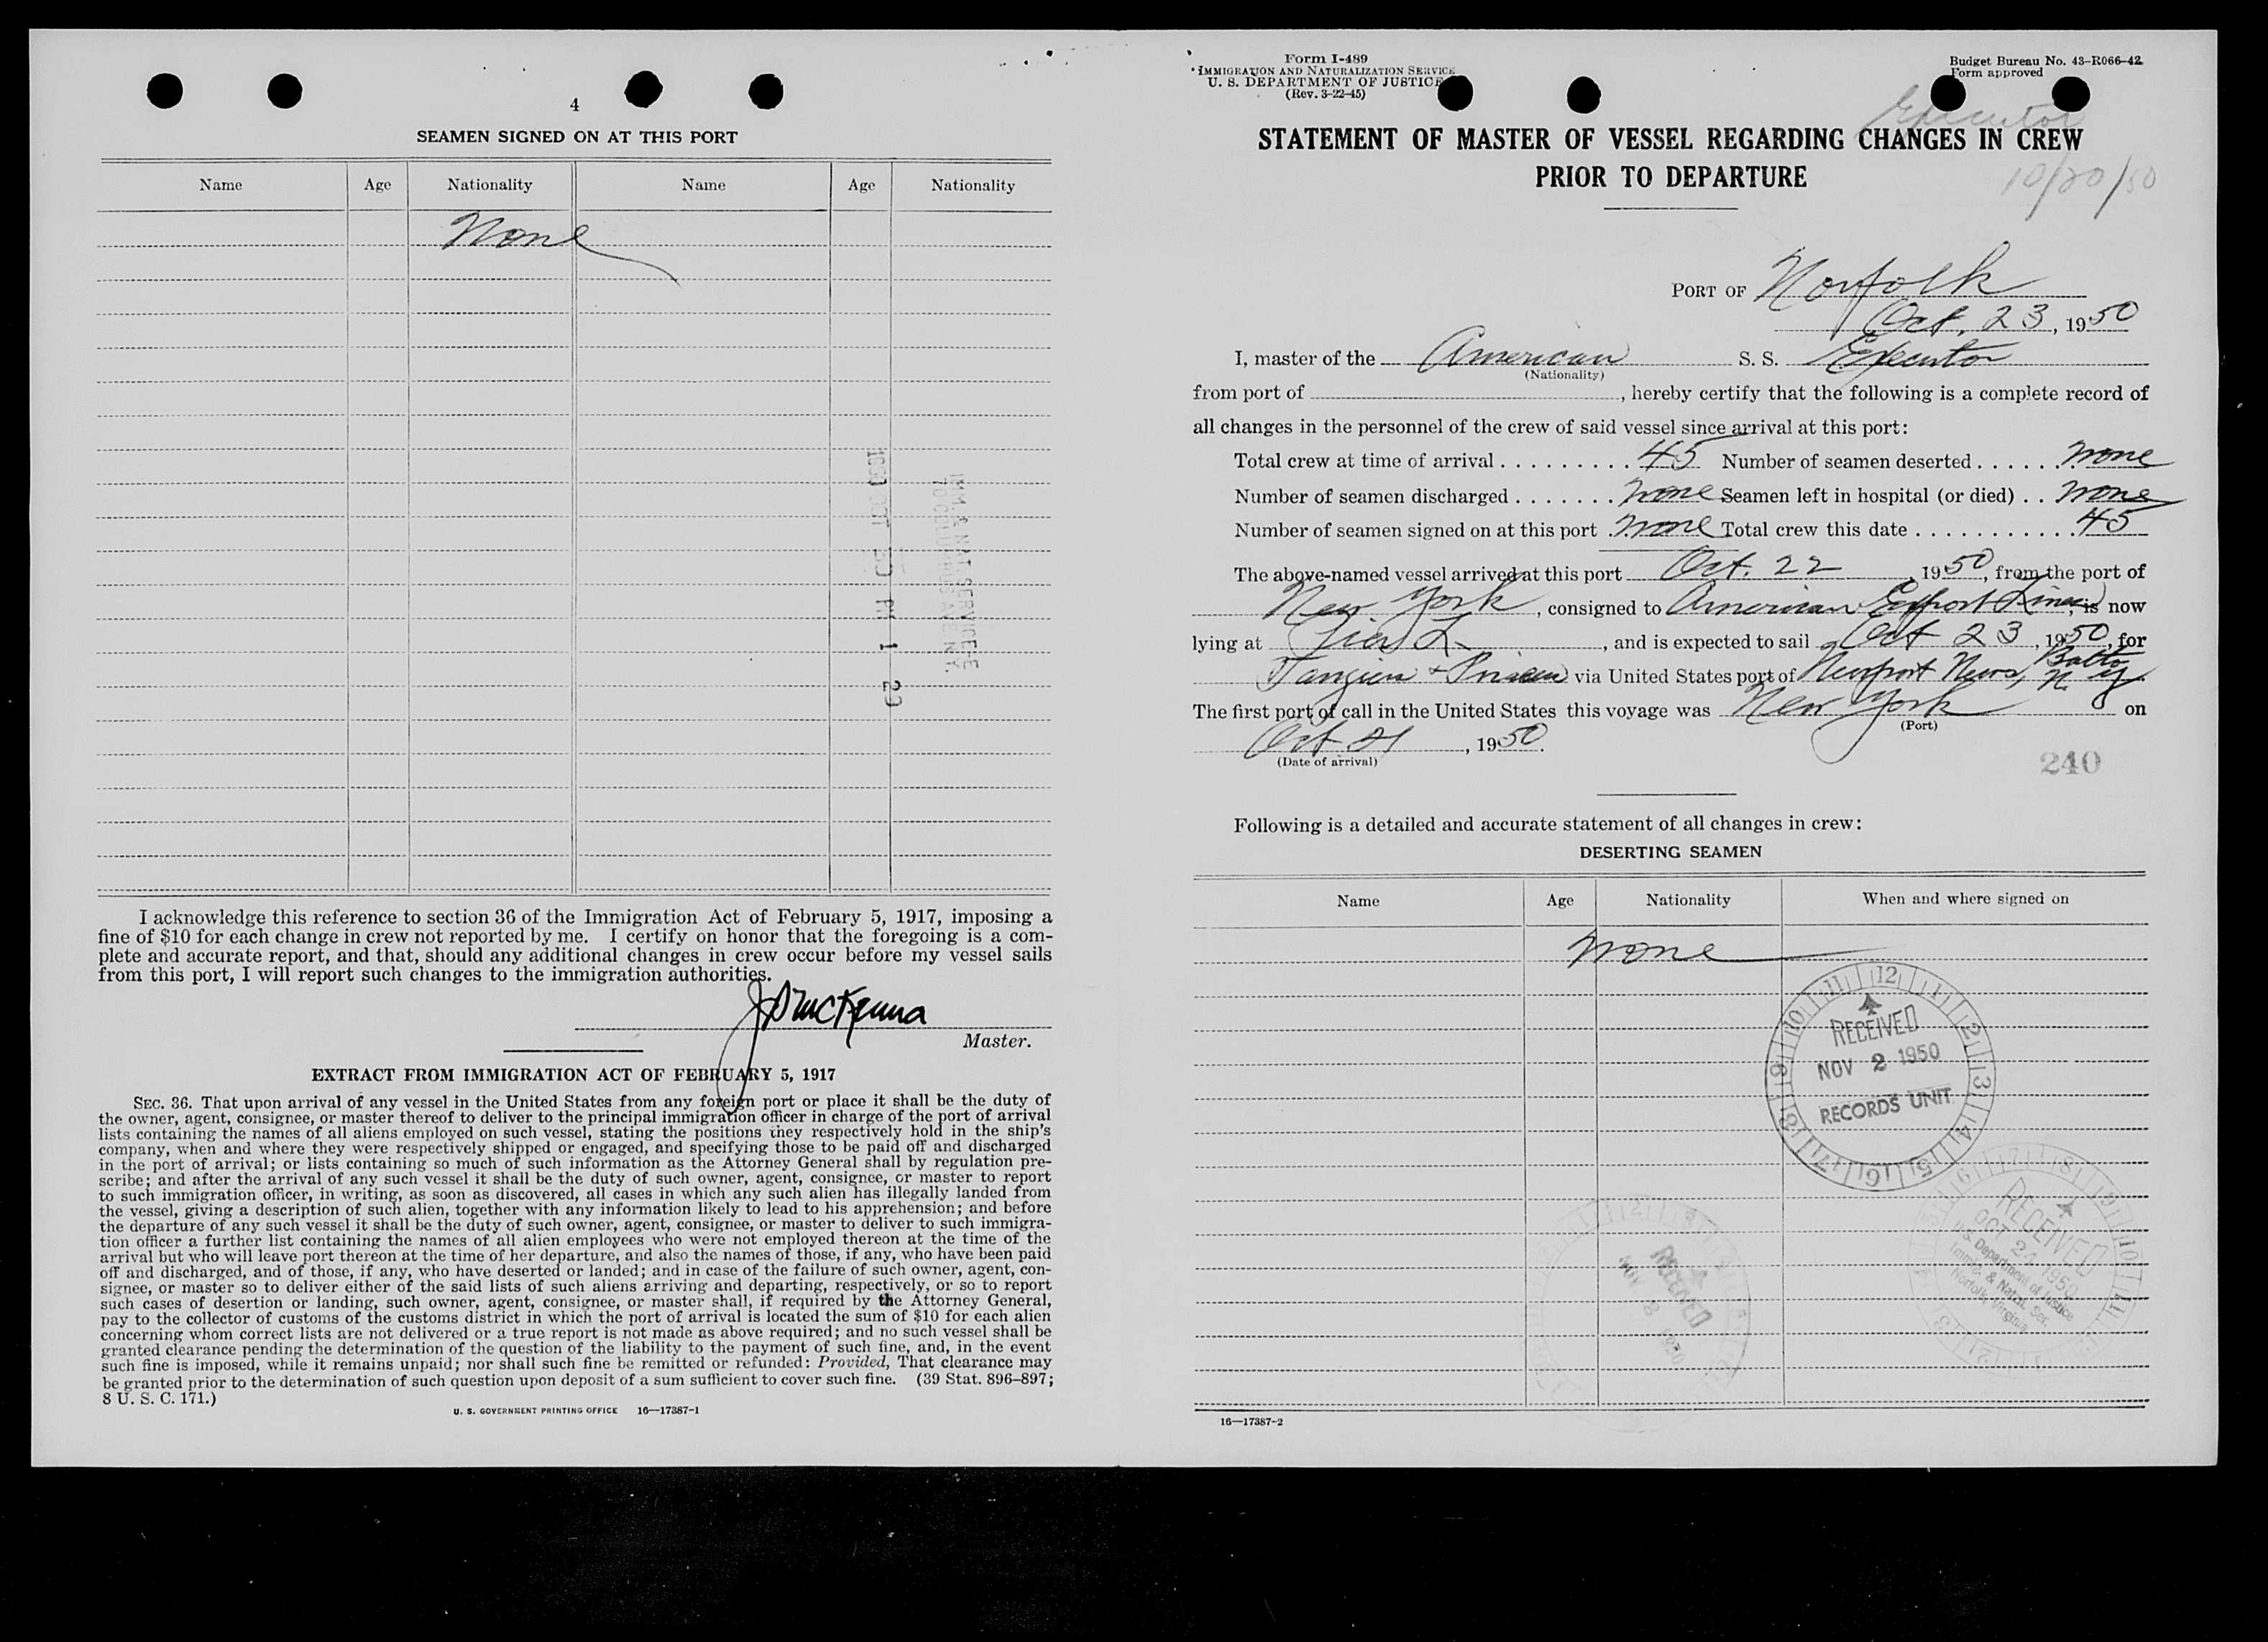 4
SEAMEN SIGNED ON AT THIS PORT
Name Age Nationality Name Age Nationality
None
1950 OCT PM 1 29
IMM. & NAT. SERVICE
70 COLUMBUS AVE N.Y.
I acknowledge this reference to section 36 of the Immigration Act of February 5, 1917, imposing a
fine of $10 for each change in crew not reported by me. I certify on honor that the foregoing is a com-
plete and accurate report, and that, should any additional changes in crew occur before my vessel sails
from this port, I will report such changes to the immigration authorities.
McKenna
Master.
EXTRACT FROM IMMIGRATION ACT OF FEBRUARY 5, 1917
SEC. 36. That upon arrival of any vessel in the United States from any foreign port or place it shall be the duty of
the owner, agent, consignee, or master thereof to deliver to the principal immigration officer in charge of the port of arrival
lists containing the names of all aliens employed on such vessel, stating the positions they respectively hold in the ship's
company, when and where they were respectively shipped or engaged, and specifying those to be paid off and discharged
in the port of arrival; or lists containing so much of such information as the Attorney General shall by regulation pre-
scribe; and after the arrival of any such vessel it shall be the duty of such owner, agent, consignee, or master to report
to such immigration officer, in writing, as soon as discovered, all cases in which any such alien has illegally landed from
the vessel, giving a description of such alien, together with any information likely to lead to his apprehension; and before
the departure of any such vessel it shall be the duty of such owner, agent, consignee, or master to deliver to such immigra-
tion officer a further list containing the names of all alien employees who were not employed thereon at the time of the
arrival but who will leave port thereon at the time of her departure, and also the names of those, if any, who have been paid
off and discharged, and of those, if any, who have deserted or landed; and in case of the failure of such owner, agent, con-
signee, or master so to deliver either of the said lists of such aliens arriving and departing, respectively, or so to report
such cases of desertion or landing, such owner, agent, consignee, or master shall, if required by the Attorney General,
pay to the collector of customs of the customs district in which the port of arrival is located the sum of $10 for each alien
concerning whom correct lists are not delivered or a true report is not made as above required; and no such vessel shall be
granted clearance pending the determination of the question of the liability to the payment of such fine, and, in the event
such fine is imposed, while it remains unpaid; nor shall such fine be remitted or refunded: Provided, That clearance may
be granted prior to the determination of such question upon deposit of a sum sufficient to cover such fine. (39 Stat. 896–897;
8 U. S. C. 171.)
U. S. GOVERNMENT PRINTING OFFICE 16—17387-1
Form I-489
IMMIGRATION AND NATURALIZATION SERVICE
U. S. DEPARTMENT OF JUSTICE
(Rev. 3-22-45)
Budget Bureau No. 43-R066-42
Form approved
Executor
STATEMENT OF MASTER OF VESSEL REGARDING CHANGES IN CREW
PRIOR TO DEPARTURE
10/20/50
PORT OF Norfolk
Oct. 23, 1950
I, master of the American S. S. Executor
(Nationality)
from port of , hereby certify that the following is a complete record of
all changes in the personnel of the crew of said vessel since arrival at this port:
Total crew at time of arrival . . . . . . . . . 45 Number of seamen deserted . . . . . . none
Number of seamen discharged . . . . . . . none Seamen left in hospital (or died) . . none
Number of seamen signed on at this port . none Total crew this date . . . . . . . . . . . 45
The above-named vessel arrived at this port Oct. 22, 1950, from the port of
New York, consigned to American Export Lines, is now
lying at Pier L, and is expected to sail Oct 23, 1950, for
via United States port of Newport News, Balto, N. Y.
The first port of call in the United States this voyage was New York on
(Port)
Oct 21, 1950.
(Date of arrival)
240
Following is a detailed and accurate statement of all changes in crew:
DESERTING SEAMEN
Name Age Nationality When and where signed on
none
RECEIVED
NOV 2 1950
RECORDS UNIT
RECEIVED
OCT 24 1950
U.S. Department of Justice
Immig. & Natzl. Ser.
Norfolk, Virginia
RECEIVED
NOV 2 1950
16—17387-2